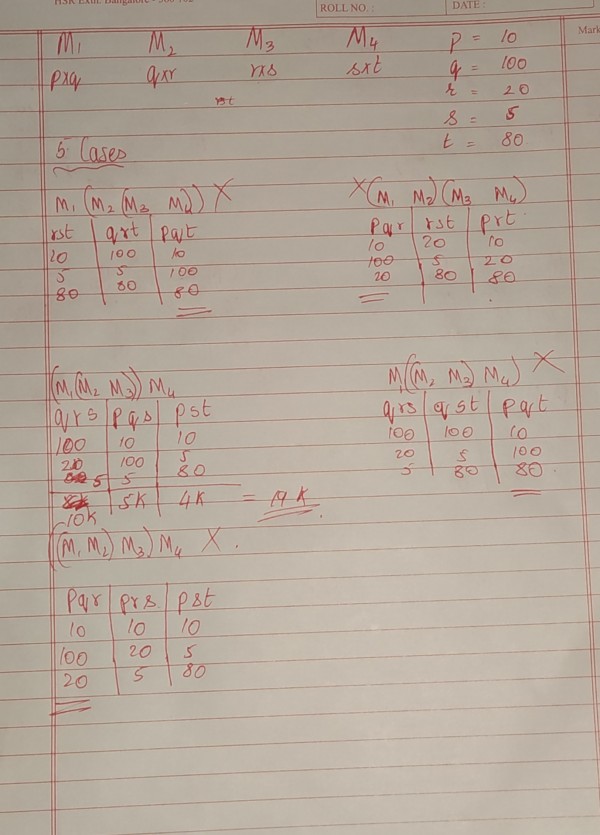 HSR Extn. Bangalore - 560 102
ROLL NO. :
DATE :
M1 M2 M3 M4
pxq qxr rxs sxt
rst
p = 10
q = 100
r = 20
s = 5
t = 80
5 Cases
M1 (M2 (M3 M4)) X
rst | qrt | pqt
20 | 100 | 10
5 | 5 | 100
80 | 80 | 80
X (M1 M2) (M3 M4)
pqr | rst | prt
10 | 20 | 10
100 | 5 | 20
20 | 80 | 80
(M1 (M2 M3)) M4
qrs | pqs | pst
100 | 10 | 10
20 | 100 | 5
5 | 5 | 80
10K | 5K | 4K = 19K
M1 ((M2 M3) M4) X
qrs | qst | pqt
100 | 100 | 10
20 | 5 | 100
5 | 80 | 80
((M1 M2) M3) M4 X.
pqr | prs | pst
10 | 10 | 10
100 | 20 | 5
20 | 5 | 80